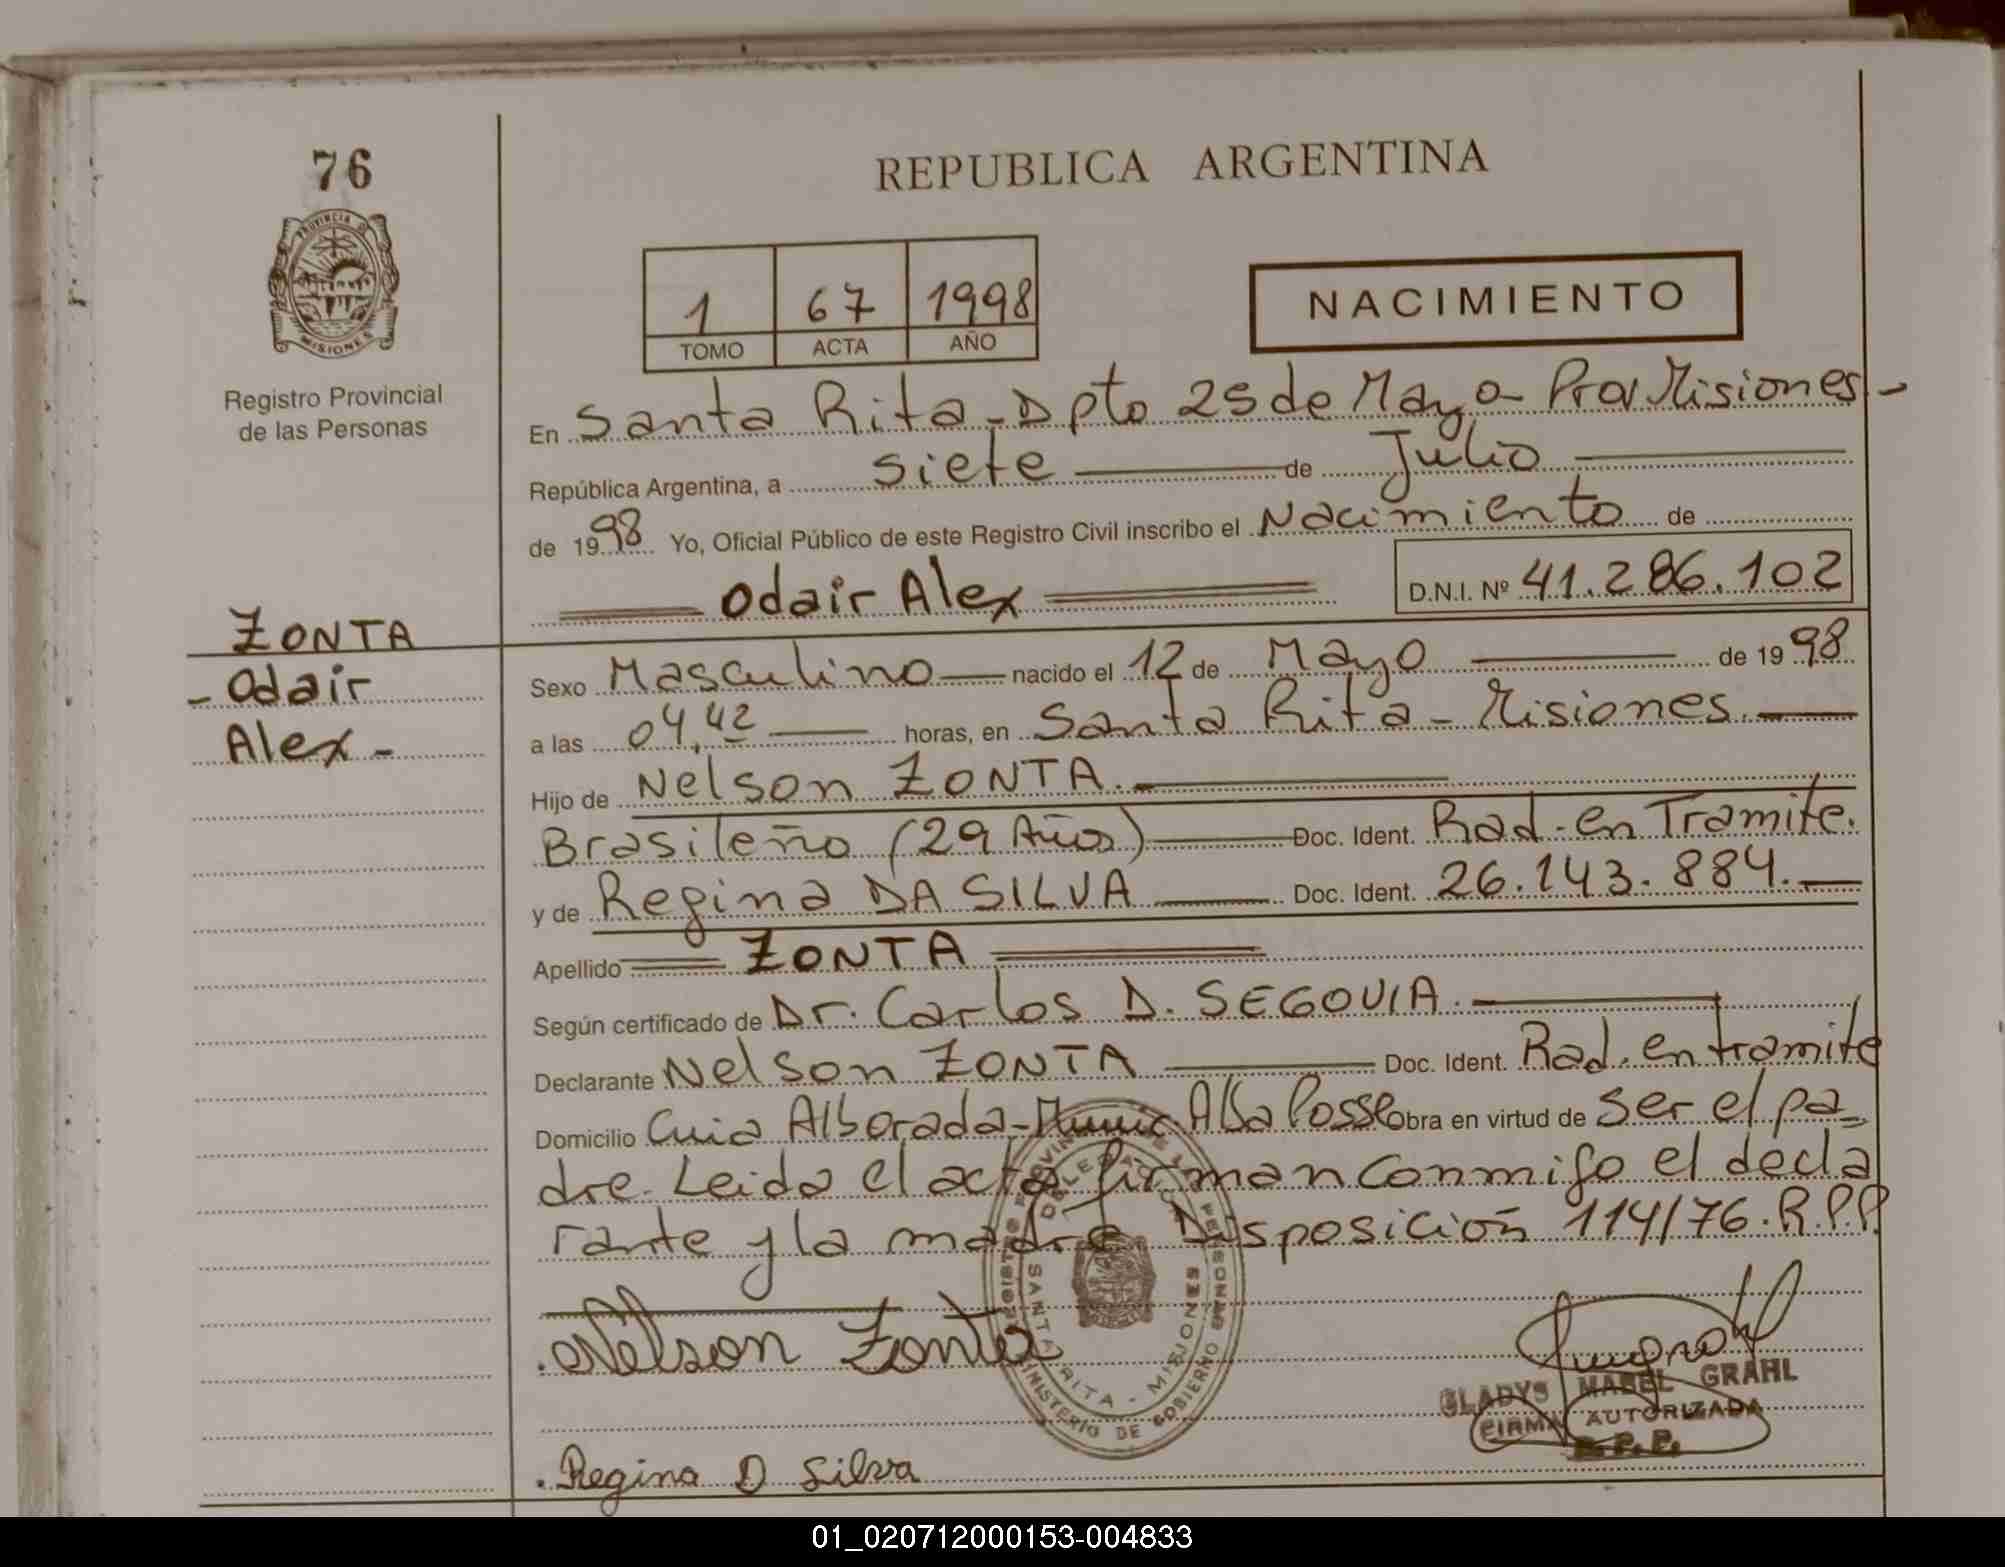 76
REPUBLICA ARGENTINA
PROVINCIA D
MISIONES
Registro Provincial
de las Personas
1 67 1998
TOMO ACTA AÑO
NACIMIENTO
En Santa Rita - Dpto 25 de Mayo - Prov Misiones -
República Argentina, a siete de Julio
de 1998 Yo, Oficial Público de este Registro Civil inscribo el Nacimiento de
Odair Alex D.N.I. Nº 41.286.102
ZONTA
- Odair
Alex -
Sexo Masculino nacido el 12 de Mayo de 1998
a las 04,42 horas, en Santa Rita - Misiones.
Hijo de Nelson ZONTA.
Brasileño (29 Años) Doc. Ident. Rad. en Tramite.
y de Regina DA SILVA Doc. Ident. 26.143.884.
Apellido ZONTA
Según certificado de Dr. Carlos D. SEGOVIA.
Declarante Nelson ZONTA Doc. Ident. Rad. en tramite
Domicilio Cnia Alborada - Munic. Alba Posse Obra en virtud de ser el pa_
dre. Leida el acta firman conmigo el decla
rante y la madre Disposición 114/76. R.P.P.
Nelson Zonta
SANTA RITA - MISIONES
MINISTERIO DE GOBIERNO
GLADYS MABEL GRAHL
FIRMA AUTORIZADA
R.P.P.
Regina D Silva
01_020712000153-004833